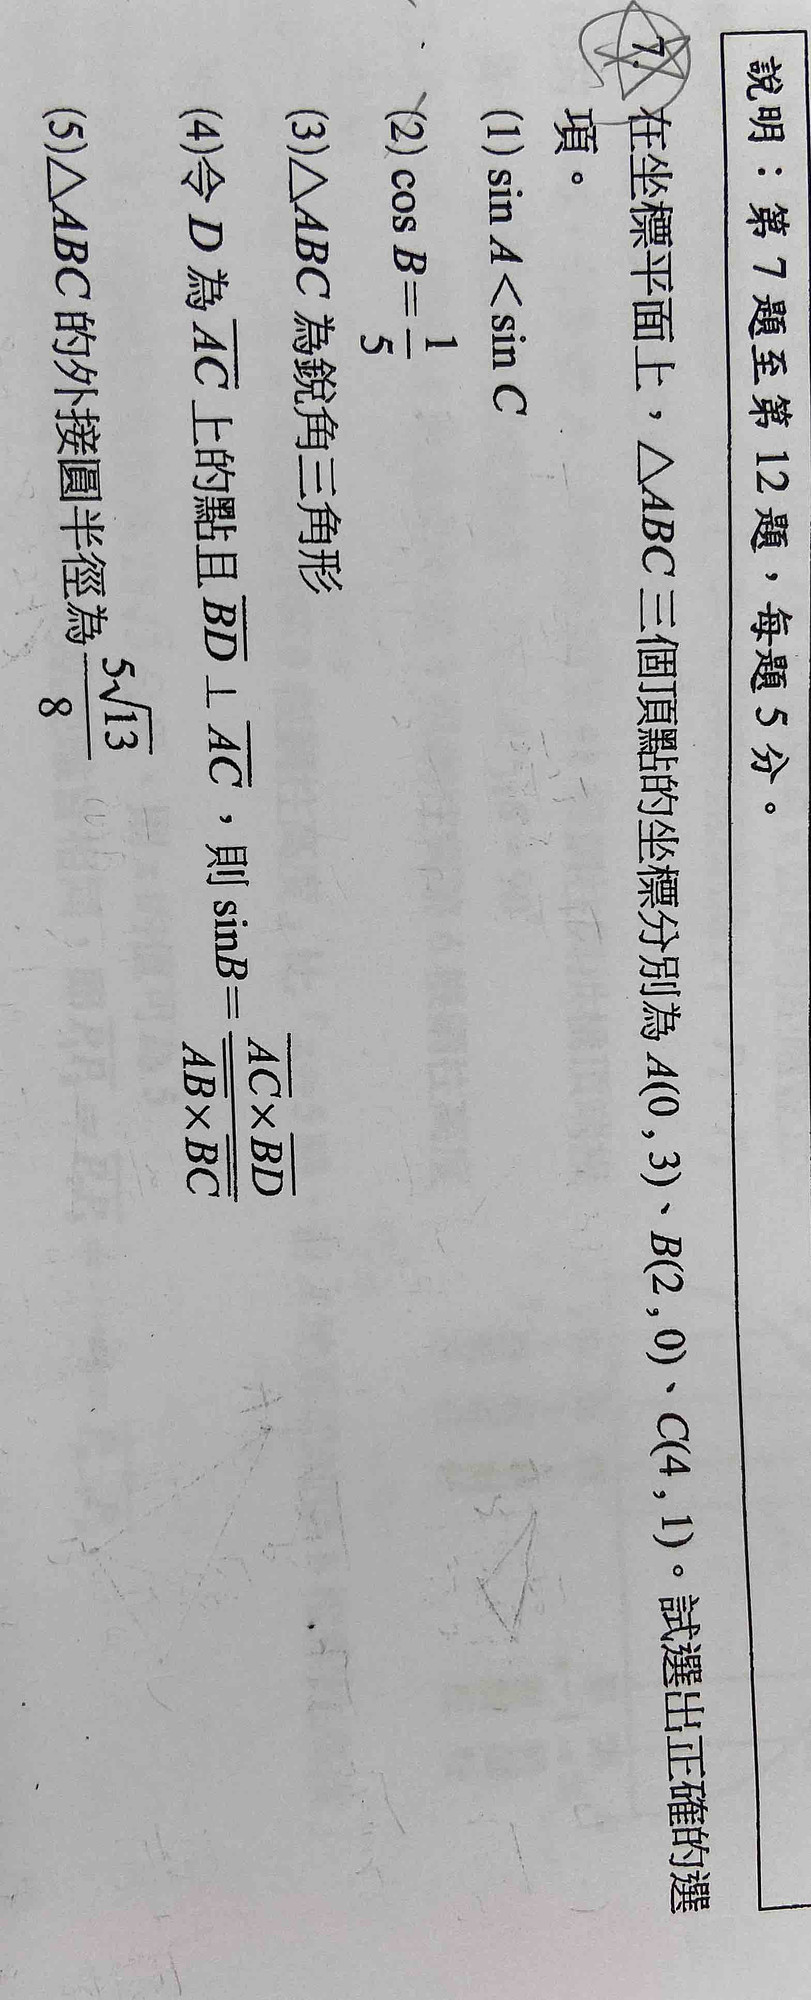 說明：第7題至第12題，每題5分。
7. 在坐標平面上，△ABC三個頂點的坐標分別為A(0,3)、B(2,0)、C(4,1)。試選出正確的選
項。
(1) sin A<sin C
(2) cos B=1/5
(3)△ABC為銳角三角形
(4)令D為AC上的點且BD⊥AC，則sinB=AC×BD/AB×BC
(5)△ABC的外接圓半徑為5√13/8